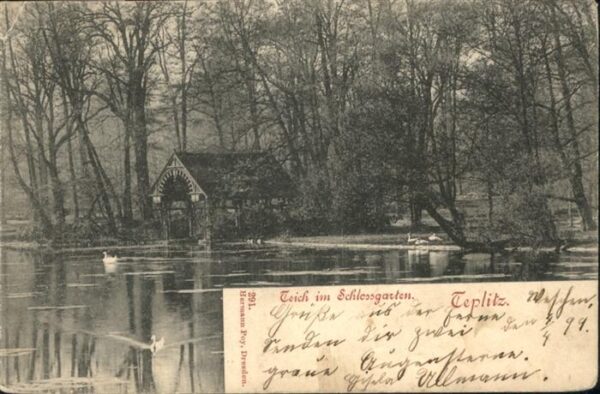 Teich im Schlossgarten. Teplitz.
291.
Hermann Poy, Dresden.
Grüße aus der Ferne
senden dir zwei den 5/4 99.
graue Augensterne.
Gisela Ullmann.